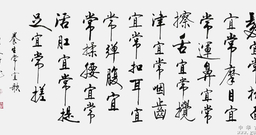 髮宜常
宜常摩目宜
常運鼻宜常
擦舌宜常攪
津宜常咽齒
宜常扣耳宜
常彈腹宜
常揉腰宜常
活肛宜常提
足宜常搓
養生常宜歌